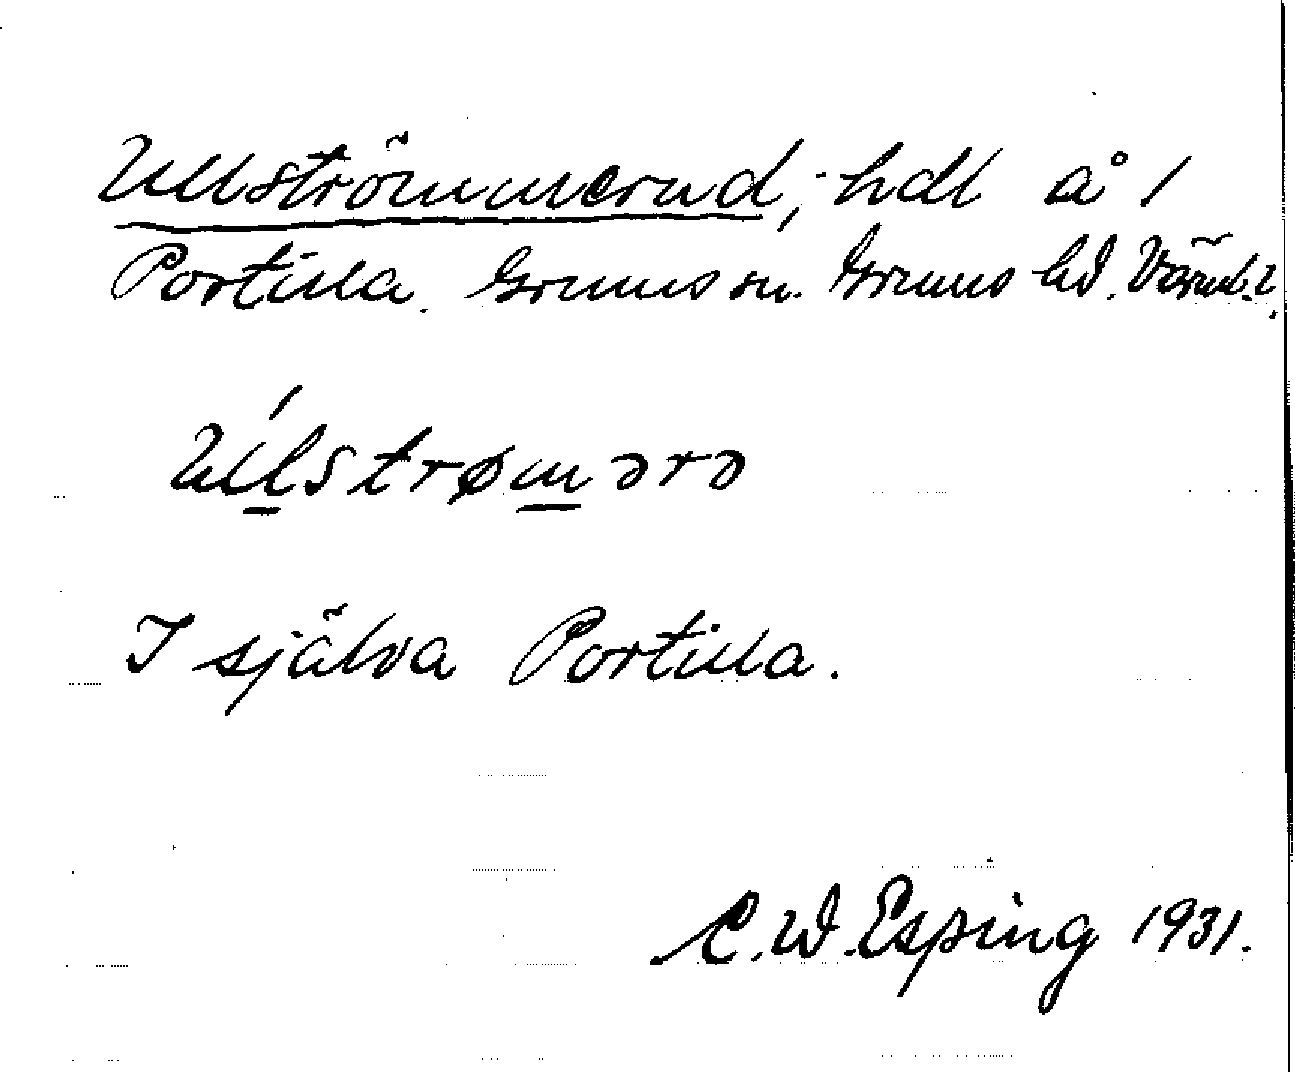 Ullströmmerud, hdl å 1
Portilla. Grums sn. Grums hd. Värml.
Úlstrømərə
I själva Portilla.
C. W. Esping 1931.